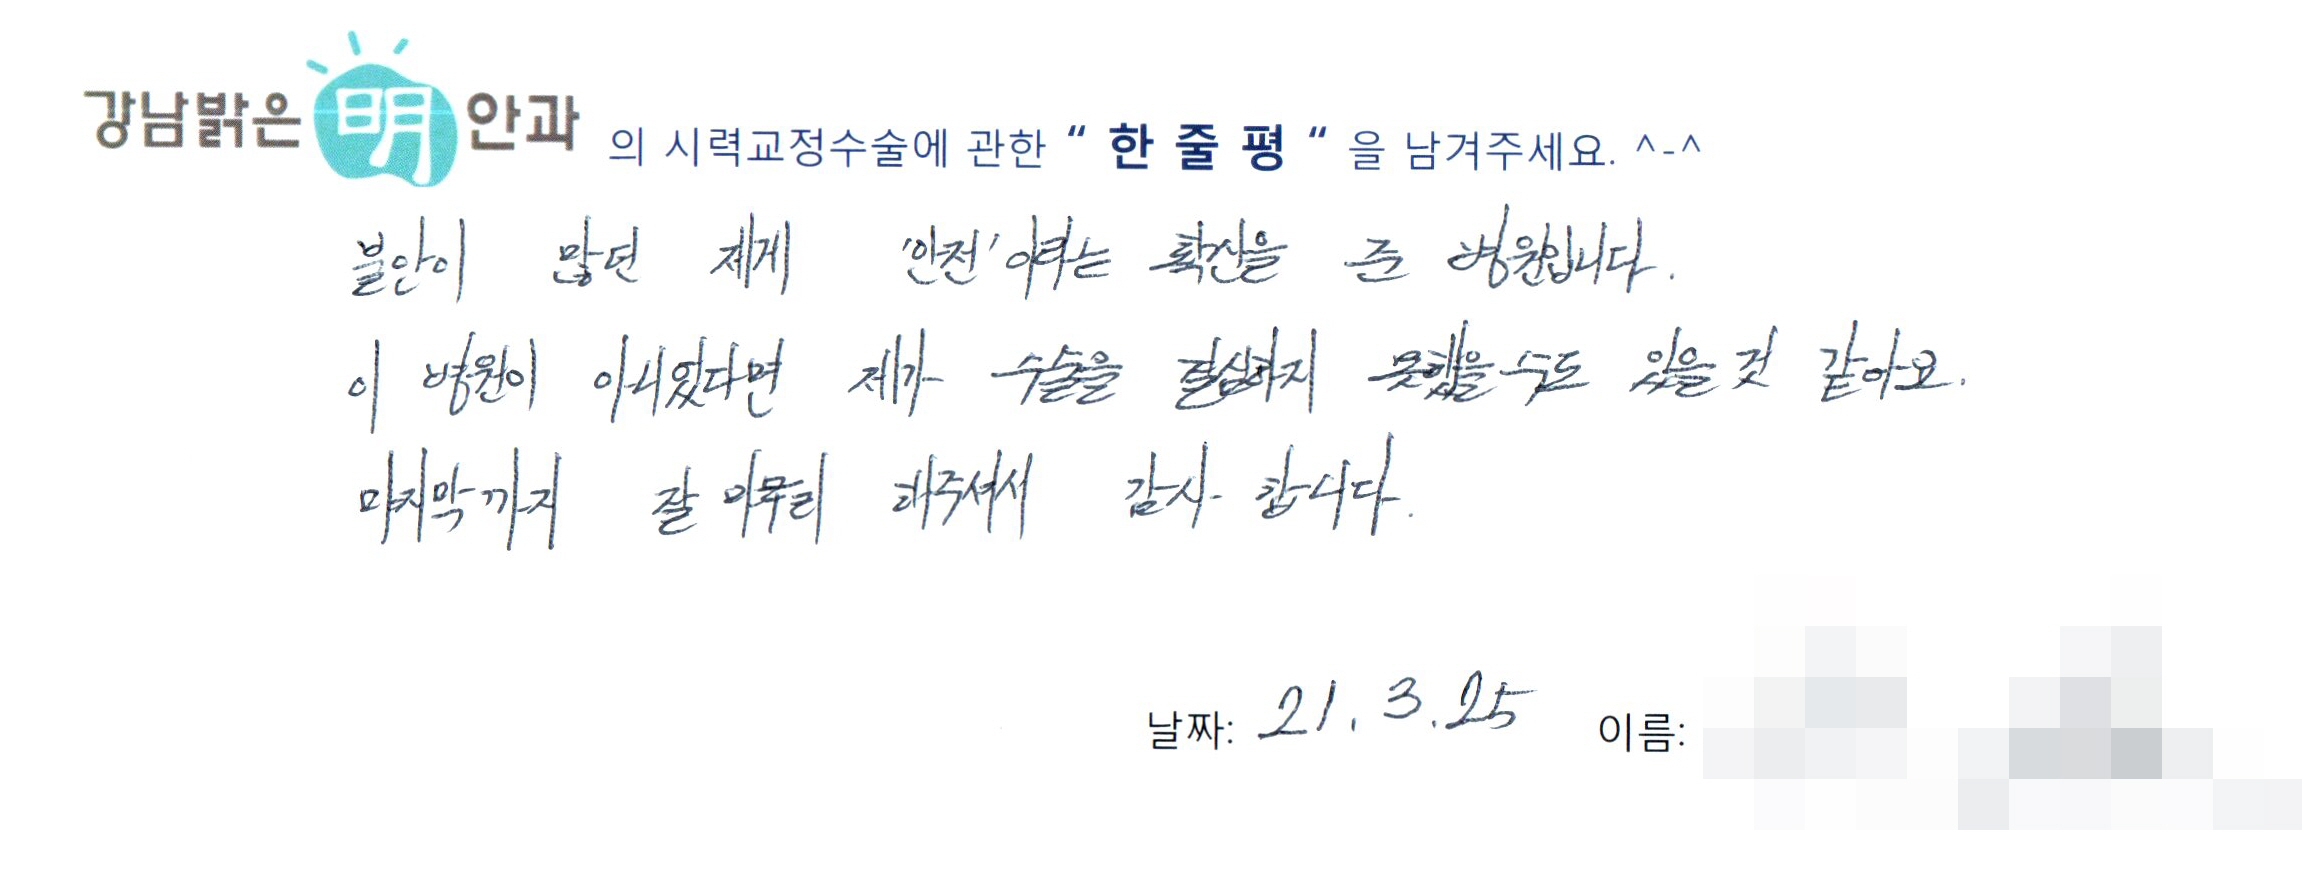 강남밝은 明 안과 의 시력교정수술에 관한 “ 한 줄 평 “ 을 남겨주세요. ^-^
불안이 많던 제게 '안전'이라는 확신을 준 병원입니다.
이 병원이 아니었다면 제가 수술을 결심하지 못했을 수도 있을 것 같아요.
마지막까지 잘 마무리 해주셔서 감사 합니다.
날짜: 21. 3. 25 이름: